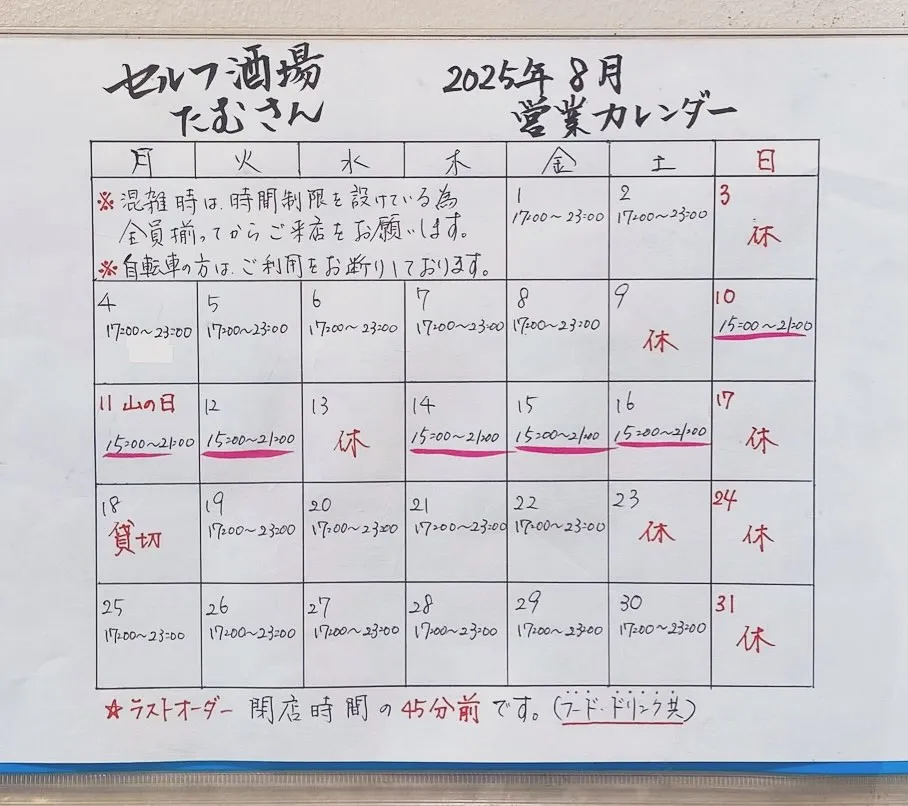 セルフ酒場
たむさん
2025年8月
営業カレンダー
月 火 水 木 金 土 日
※混雑時は、時間制限を設けている為
全員揃ってからご来店をお願いします。
※自転車の方は、ご利用をお断りしております。
1 2 3
17:00~23:00 17:00~23:00 休
4 5 6 7 8 9 10
17:00~23:00 17:00~23:00 17:00~23:00 17:00~23:00 17:00~23:00 休 15:00~21:00
11 山の日 12 13 14 15 16 17
15:00~21:00 15:00~21:00 休 15:00~21:00 15:00~21:00 15:00~21:00 休
18 19 20 21 22 23 24
貸切 17:00~23:00 17:00~23:00 17:00~23:00 17:00~23:00 休 休
25 26 27 28 29 30 31
17:00~23:00 17:00~23:00 17:00~23:00 17:00~23:00 17:00~23:00 17:00~23:00 休
☆ラストオーダー 閉店時間の45分前です。(フード・ドリンク共)